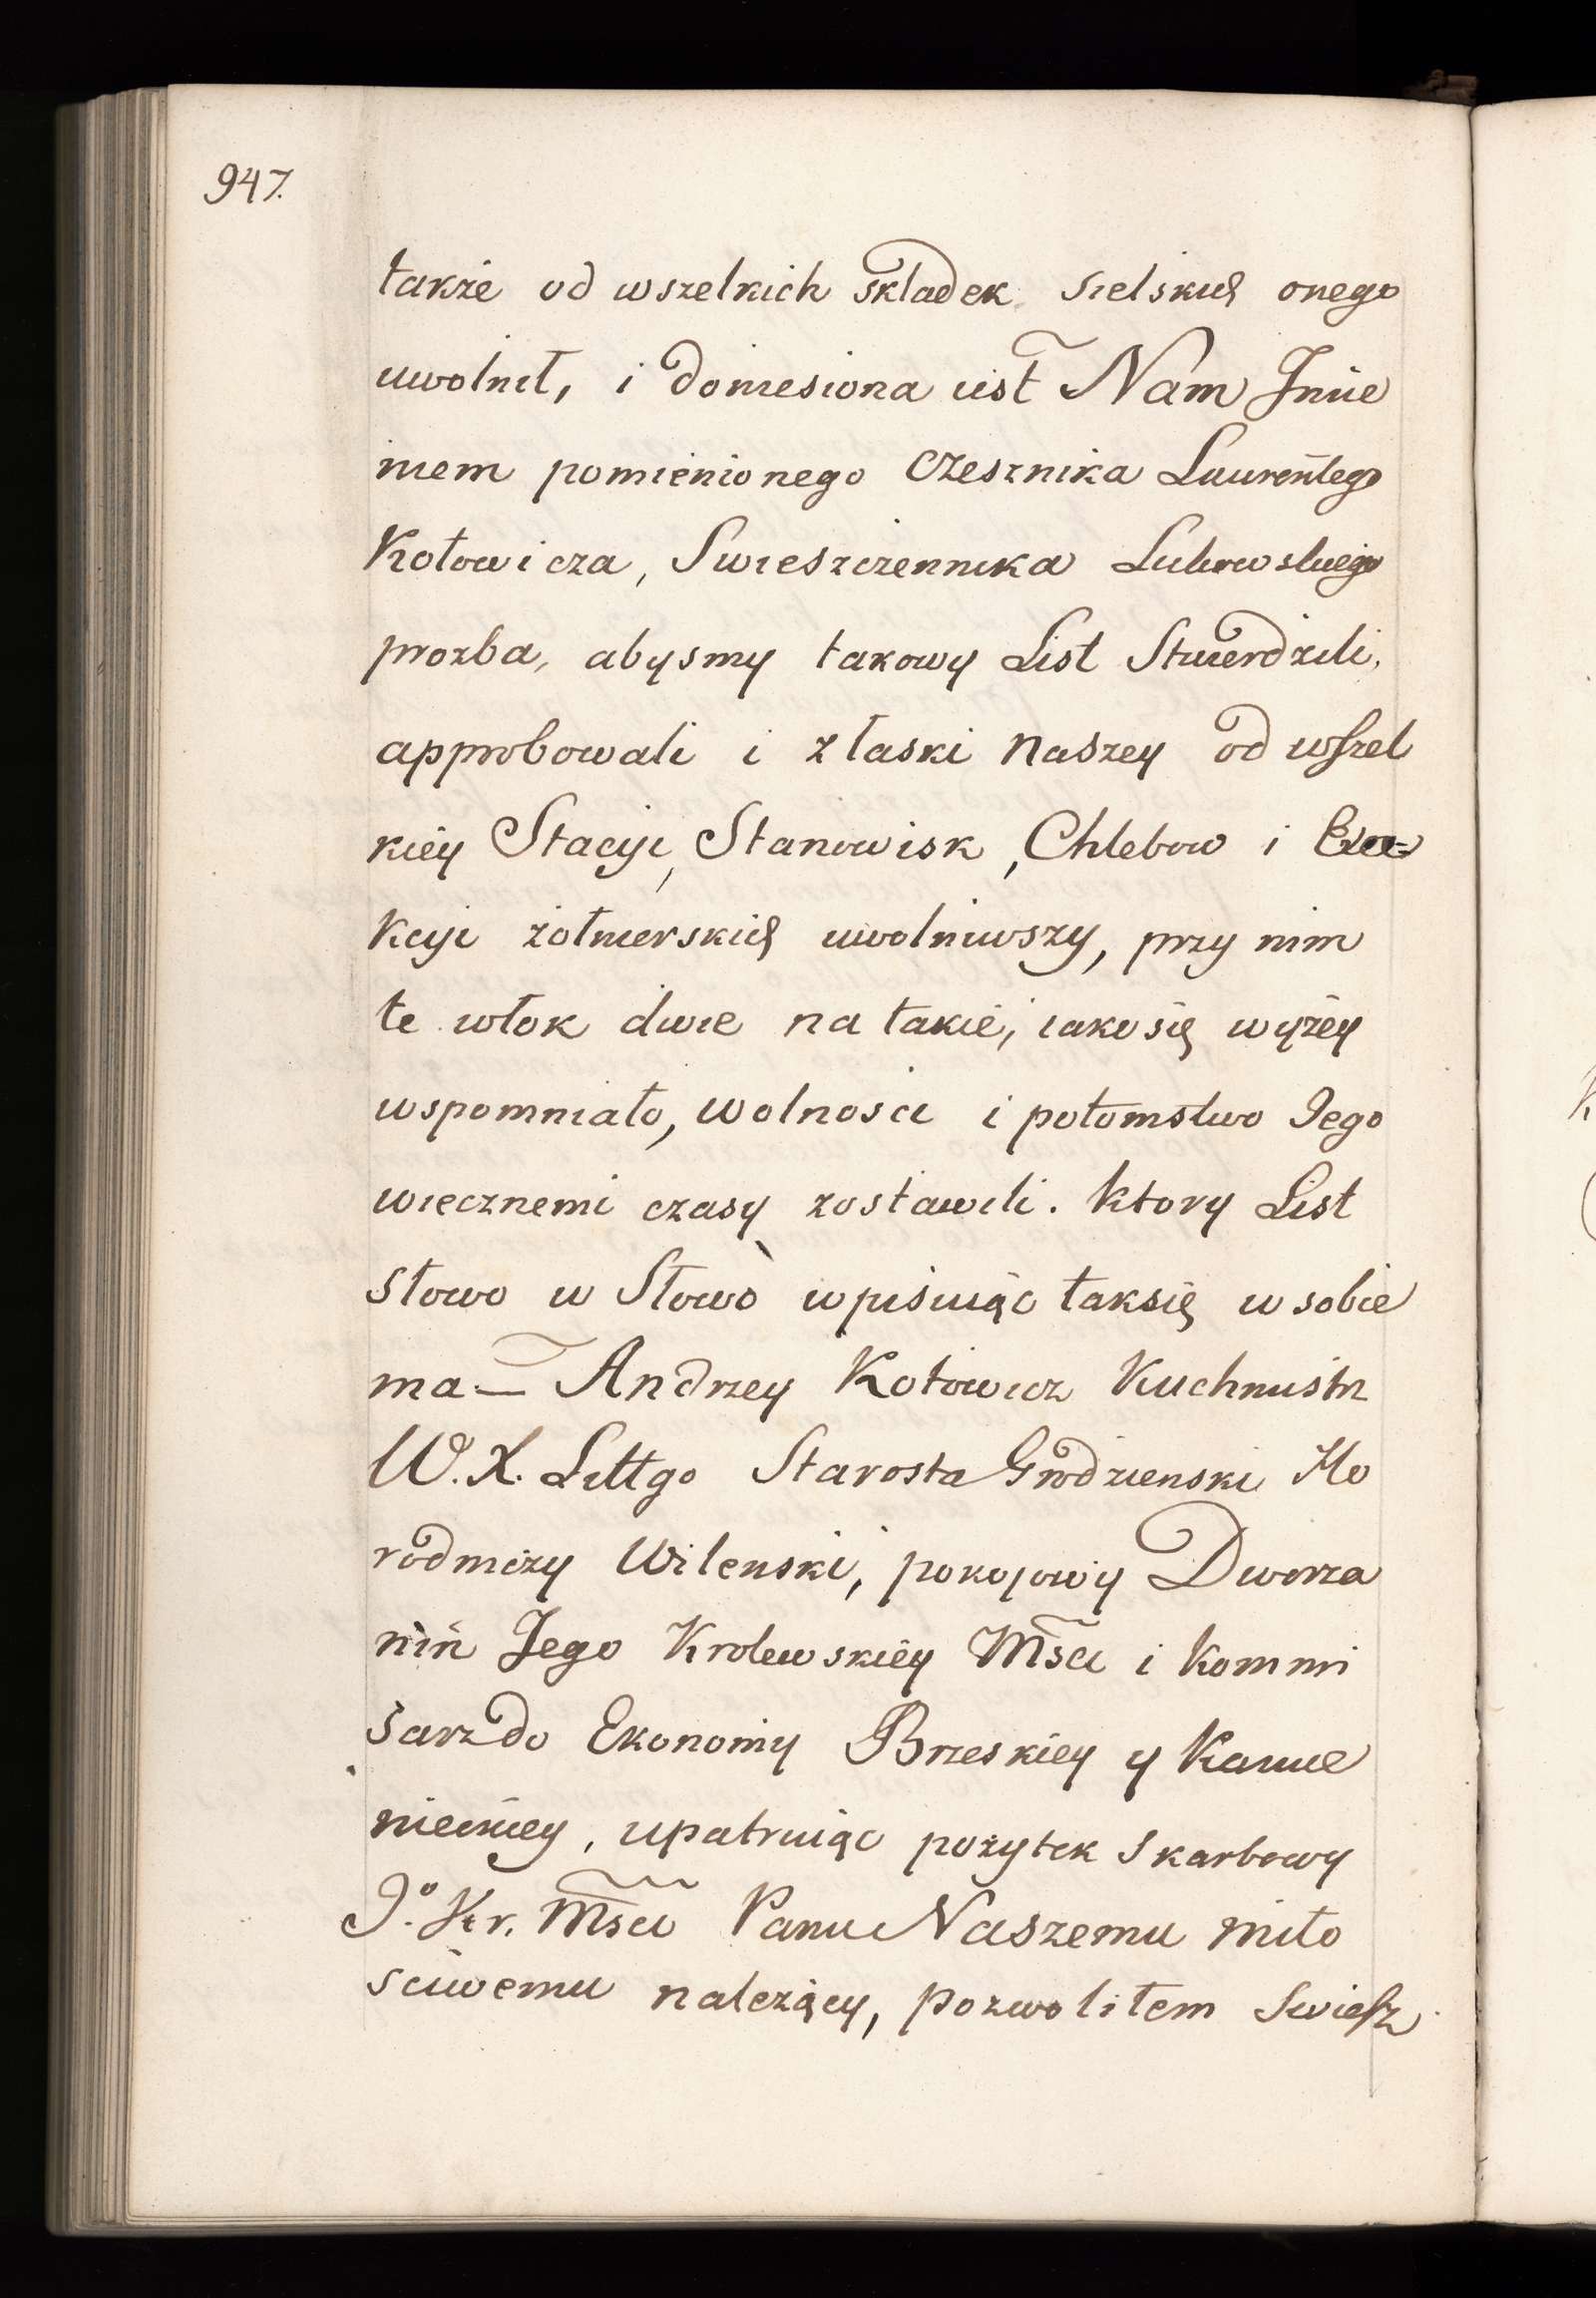 947.
także od wszelkich składek sielskich onego
uwolnił, i doniesiona iest Nam Jmie
niem pomienionego Czesznika Laurentego
Kotowicza, Swieszczennika
prozba, abysmy takowy List Stwierdzili,
approbowali i z łaski Naszey od wszel
kiey Stacyi, Stanowisk, Chlebow i Exe=
kcyi żołnierskich uwolniwszy, przy nim
te włok dwie na takie, iako się wyżey
wspomniało, wolnosci i potomstwo Jego
wiecznemi czasy zostawili. Ktory List
Słowo w Słowo wpisuiąc tak się w sobie
ma — Andrzey Kotowicz Kuchmistrz
W. X. Littgo Starosta Grodzienski Ho
rodniczy Wilenski, pokojowy Dworza
nin Jego Krolewskiey Msci i Kommi
sarz do Ekonomiy Brzeskiey y Kamie
nieckiey, upatruiąc pożytek skarbowy
Jº. Kr. Msci Panu Naszemu miło
sciwemu należący, pozwoliłem Swiesz